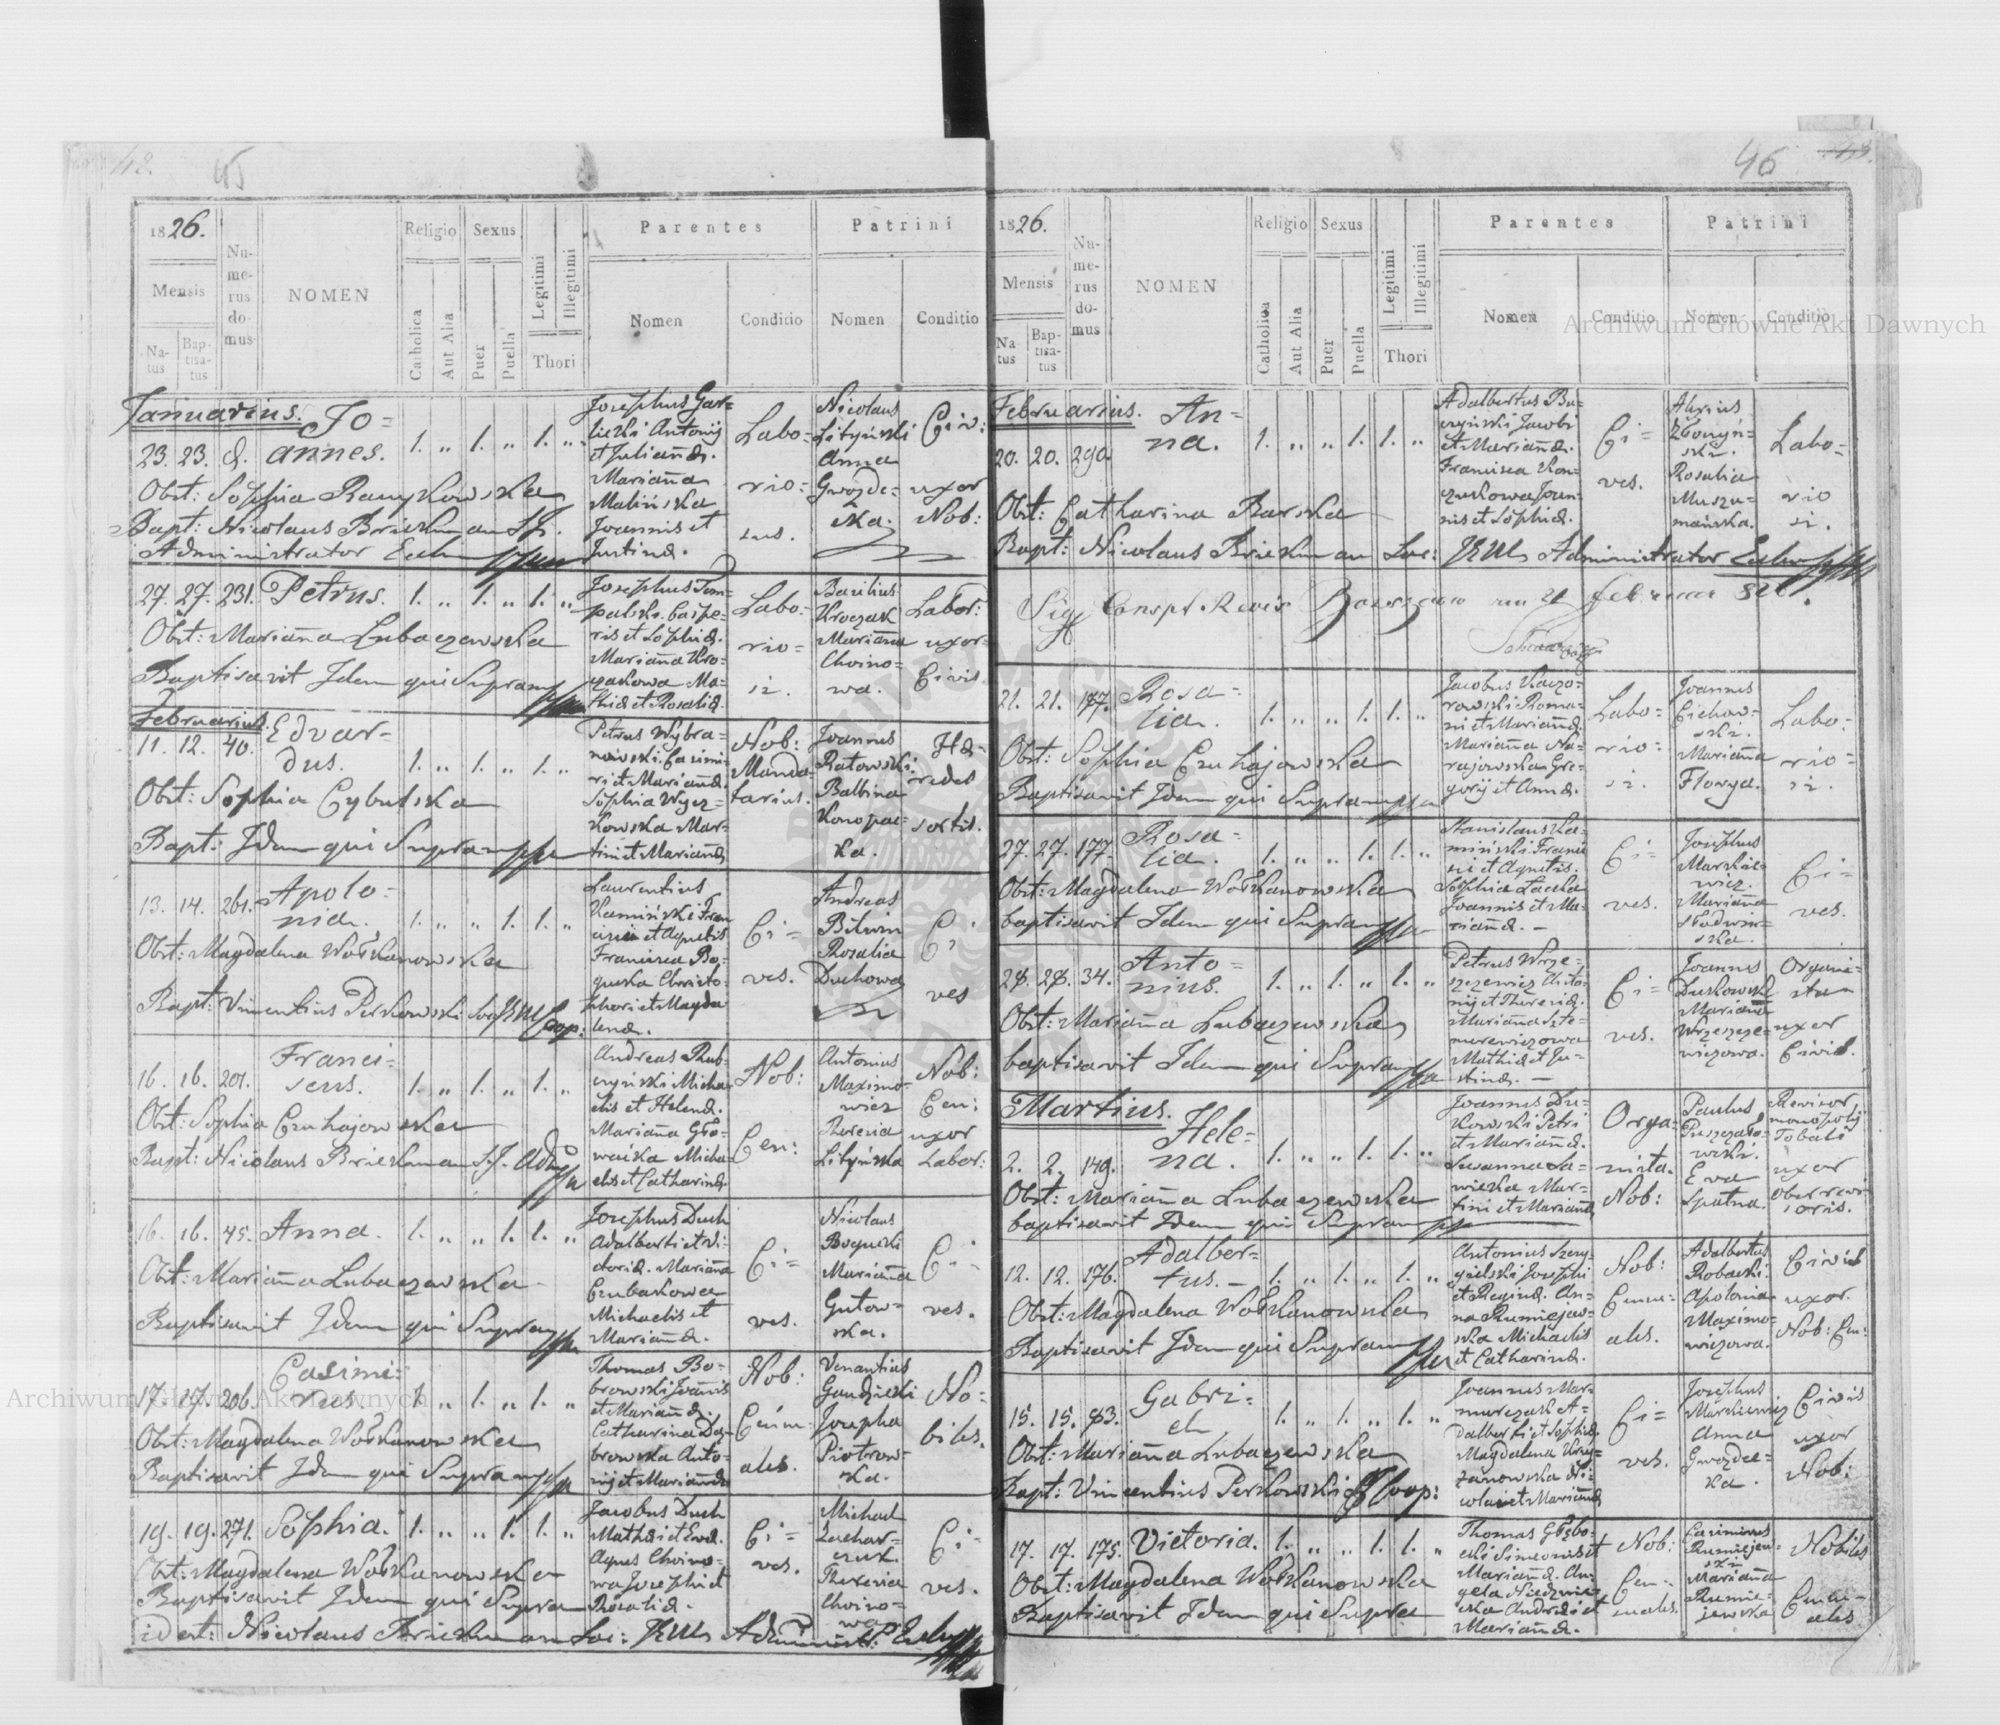 42. 45
1826.
Mensis
Na-
tus
Bap-
tisa-
tus
Nu-
me-
rus
do-
mus
NOMEN
Religio
Catholica
Aut Alia
Sexus
Puer
Puella
Legitimi
Illegitimi
Thori
Parentes
Nomen
Conditio
Patrini
Nomen
Conditio
Januarius.
23. 23. 8. Jo=
annes. 1. „ 1. „ 1. „
Obst: Sophia
Bapt: Nicolaus Brickman S.J.
Administrator Eccl
Josephus Gar=
licki Antonij
et Julianæ.
Marianna
Malinska
Joannis et
Justinæ.
Labo=
rio=
sus.
Nicolaus
Lityński
Anna
Gwozde=
cka.
Civ:
uxor
Nob:
27. 27. 231. Petrus. 1. „ 1. „ 1. „
Obst: Marianna Lubaczewska
Baptisavit Idem qui Supra mpp
Josephus Tom=
palski Caspe=
ris et Sophiæ.
Marianna Kro=
czakowa Ma=
thiæ et Rosaliæ.
Labo=
rio=
si.
Basilius
Kroczak
Marianna
Choino=
wa.
Labor:
uxor=
Civis
Februarius.
11. 12. 40. Edvar=
dus. 1. „ 1. „ 1. „
Obst: Sophia Cybulska
Bapt: Idem qui Supra mpp
Petrus Wybra=
nowski Casimi=
ri et Mariannæ.
Sophia Wycz=
kowska Mar=
tini et Mariannæ
Nob:
Manda=
tarius.
Joannes
Ratowski
Balbina
Konopac=
ka.
Hæ=
redes
sortis.
13. 14. 261. Apolo=
nia. 1. „ „ 1. 1. „
Obst: Magdalena Wołkanowska
Bapt: Vincentius Perkowski Coop:
Laurentius
Kamiński Fran
cisci et Agnetis
Francisca Bo=
gucka Christo=
phori et Magda
lenæ.
Ci=
ves.
Andreas
Bilwin
Rosalia
Duchowa
Ci=
ves
16. 16. 201. Franci=
scus. 1. „ 1. „ 1. „
Obst: Sophia Czuhajowska
Bapt: Nicolaus Brickman S.J. Adm
Andreas Rub=
czyński Micha=
elis et Helenæ.
Marianna Gło=
wacka Micha=
elis et Catharinæ.
Nob:
Cen:
Antonius
Maximo=
wicz
Theresia
Lityńska
Nob:
Cen:
uxor
Labor:
16. 16. 45. Anna. 1. „ „ 1. 1. „
Obst: Marianna Lubaczewska
Baptisavit Idem qui Supra mpp
Josephus Duch
Adalberti et Vi=
ctoriæ. Marianna
Czubakowa
Michaelis et
Mariannæ.
Ci=
ves.
Nicolaus
Bogucki
Marianna
Gutow=
ska.
Ci=
ves.
17. 17. 206. Casimi=
rus 1. „ 1. „ 1. „
Obst: Magdalena Wołkanowska
Baptisavit Idem qui Supra mpp
Thomas Bo=
browski Joannis
et Mariannæ.
Catharina Dą=
browska Anto=
nij et Mariannæ
Nob:
Censu=
ales.
Venantius
Gaudzicki
Josepha
Piotrow=
ska.
No=
biles.
19. 19. 271. Sophia. 1. „ „ 1. 1. „
Obst: Magdalena Wołkanowska
Baptisavit Idem qui Supra
id est: Nicolaus Brickman Soc: JESU Administr: Eccl
Jacobus Duch
Mathæi et Evæ.
Agnes Choino=
wa Josephi et
Rosaliæ.
Ci=
ves.
Michael
Zachar=
czuk
Theresia
Choino=
wa
Ci=
ves.
46
1826.
Mensis
Na-
tus
Bap-
tisa-
tus
Nu-
me-
rus
do-
mus
NOMEN
Religio
Catholica
Aut Alia
Sexus
Puer
Puella
Legitimi
Illegitimi
Thori
Parentes
Nomen
Conditio
Patrini
Nomen
Conditio
Februarius.
20. 20. 290. An=
na. 1. „ „ 1. 1. „
Obst: Catharina Barska
Bapt: Nicolaus Brickman Soc: JESU Administrator Eccl
Adalbertus Bu=
czyński Jacobi
et Mariannæ.
Francisca Kon=
czukowa Joan=
nis et Sophiæ.
Ci=
ves.
Alexius
Rosalia
Muszu=
mańska.
Labo=
rio
si.
21. 21. 187. Rosa=
lia. 1. „ „ 1. 1. „
Obst: Sophia Czuhajowska
Baptisavit Idem qui Supra mpp
Jacobus Kaczo=
rowski Roma=
ni et Mariannæ.
Marianna Na=
rajowska Gre=
gorij et Annæ.
Labo=
rio=
si.
Joannes
Cichow=
ski.
Marianna
Florga.
Labo=
rio=
si.
27. 27. 177. Rosa=
lia. 1. „ „ 1. 1. „
Obst: Magdalena Wołkanowska
baptisavit Idem qui Supra mpp
Stanislaus Ka=
miński Franci
sci et Agnetis.
Sophia Lacka
Joannis et Ma=
riannæ. –
Ci=
ves.
Josephus
Markie=
wicz.
Marianna
Słodwin=
ska.
Ci=
ves.
28. 28. 34. Anto=
nius. 1. „ 1. „ 1. „
Obst: Marianna Lubaczewska
baptisavit Idem qui Supra mpp
Petrus Wrze=
szczewicz Anto=
nij et Theresiæ.
Marianna Szte=
merewiczowa
Mathiæ et Ju=
stinæ. –
Ci=
ves.
Joannes
Dukowski
Marianna
Wrzeszcze=
wiczowa.
Organi=
sta
uxor
Civis.
Martius.
2. 2. 149. Hele=
na. 1. „ „ 1. 1. „
Obst: Marianna Lubaczewska
baptisavit Idem qui Supra mpp
Joannes Du=
kowski Petri
et Mariannæ.
Susanna Sa=
wicka Mar=
tini et Mariannæ
Orga=
nista.
Nob:
Paulus
Puszczało=
wski.
Eva
Spatna.
Revisor
monopolij
Tobaci
uxor
Oberrevi=
soris.
12. 12. 176. Adalber=
tus. – 1. „ 1. „ 1. „
Obst: Magdalena Wołkanowska
Baptisavit Idem qui Supra mpp
Antonius Szczy=
gielski Josephi
et Reginæ. An=
na Rumiejow=
ska Michaelis
et Catharinæ.
Nob:
Censu=
ales.
Adalbertus
Robacki.
Apolonia
Maximo=
wiczowa.
Civis
uxor.
Nob: Cen:
15. 15. 83. Gabri=
el 1. „ 1. „ 1. „
Obst: Marianna Lubaczewska
Bapt: Vincentius Perkowski SJ Coop:
Joannes Mar=
murczak A=
dalberti et Sophiæ.
Magdalena Krzy=
żanowska Ni=
colai et Mariannæ
Ci=
ves.
Josephus
Markiewicz
Anna
Gwozdec=
ka.
Civis
uxor
Nob:
17. 17. 175. Victoria. 1. „ „ 1. 1. „
Obst: Magdalena Wołkanowska
Baptisavit Idem qui Supra
Thomas Głębo=
cki Simeonis et
Mariannæ. An=
gela Niedzwie=
cka Andreæ et
Mariannæ.
Nob:
Cen=
suales.
Casimirus
Rumiejow=
ski
Marianna
Rumie=
jowska
Nobiles
Censu=
ales.
Archiwum Główne Akt Dawnych
Archiwum Główne Akt Dawnych